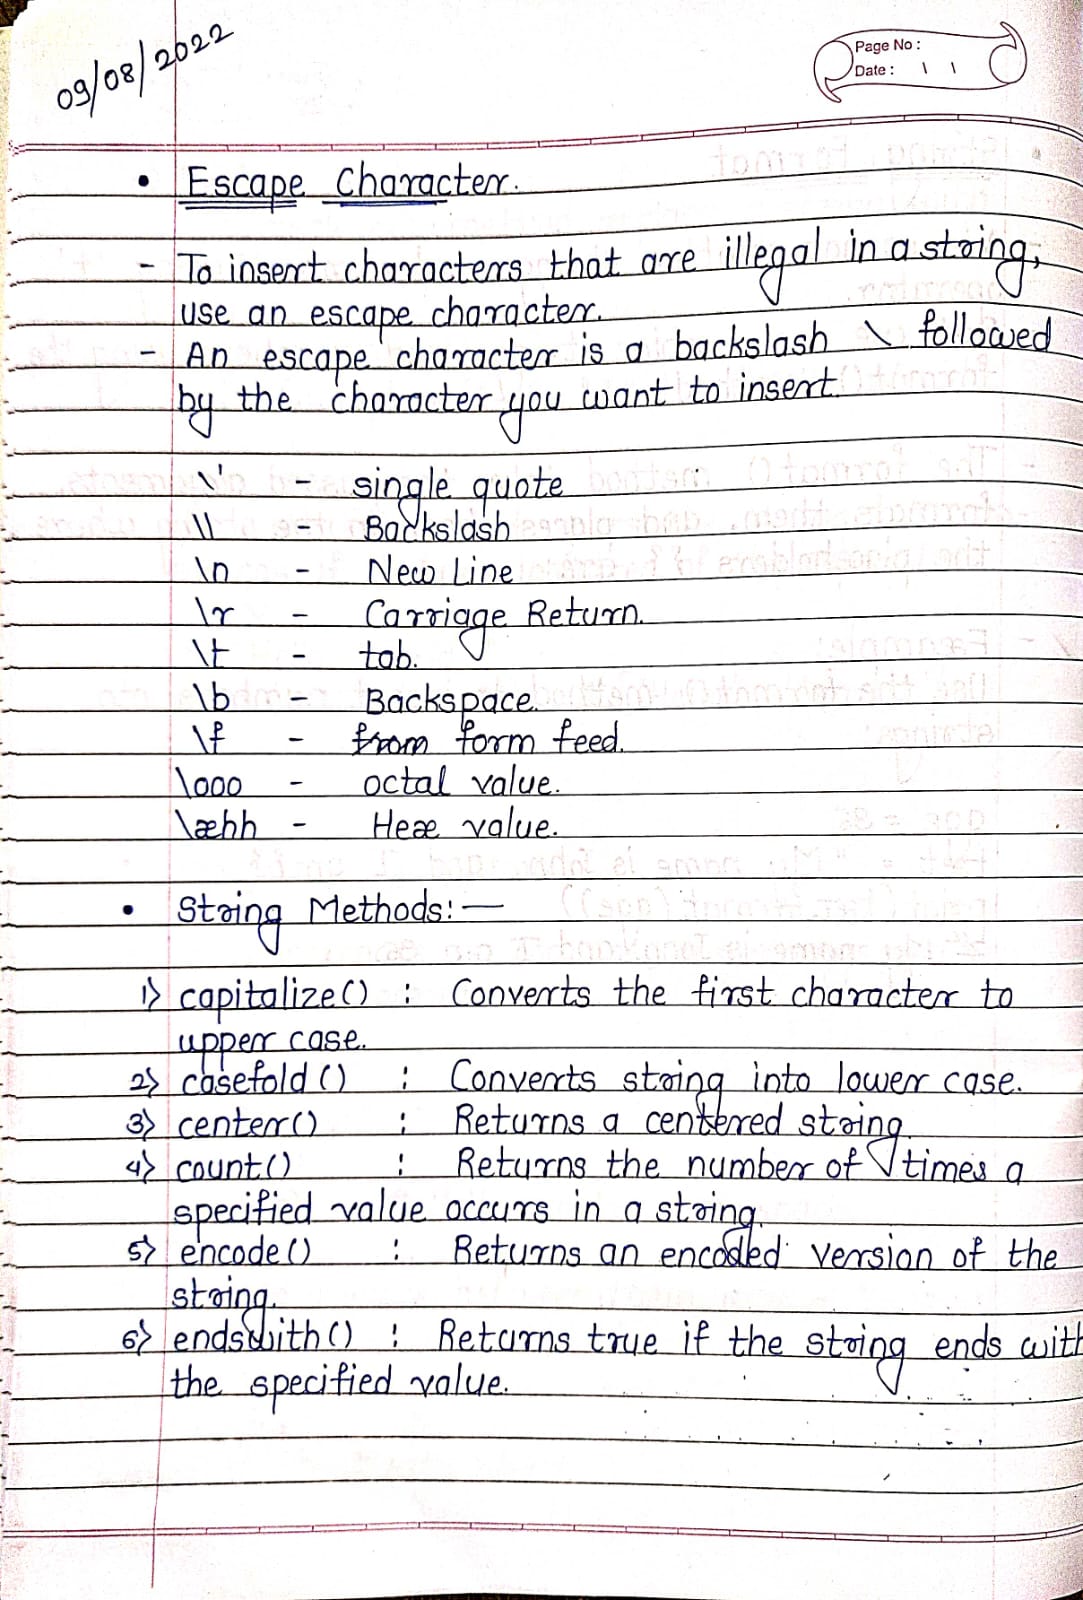 09/08/2022
Page No :
Date :    \   \
• Escape Character.
- To insert characters that are illegal in a string,
use an escape character.
- An escape character is a backslash \ followed
by the character you want to insert.
\' - single quote
\\ - Backslash
\n - New Line
\r - Carriage Return.
\t - tab.
\b - Backspace.
\f - from form feed.
\ooo - octal value.
\xhh - Hex value.
• String Methods:—
1) capitalize() : Converts the first character to
upper case.
2) casefold() : Converts string into lower case.
3) center() : Returns a centered string.
4) count() : Returns the number of times a
specified value occurs in a string.
5) encode() : Returns an encoded version of the
string.
6) endswith() : Returns true if the string ends with
the specified value.